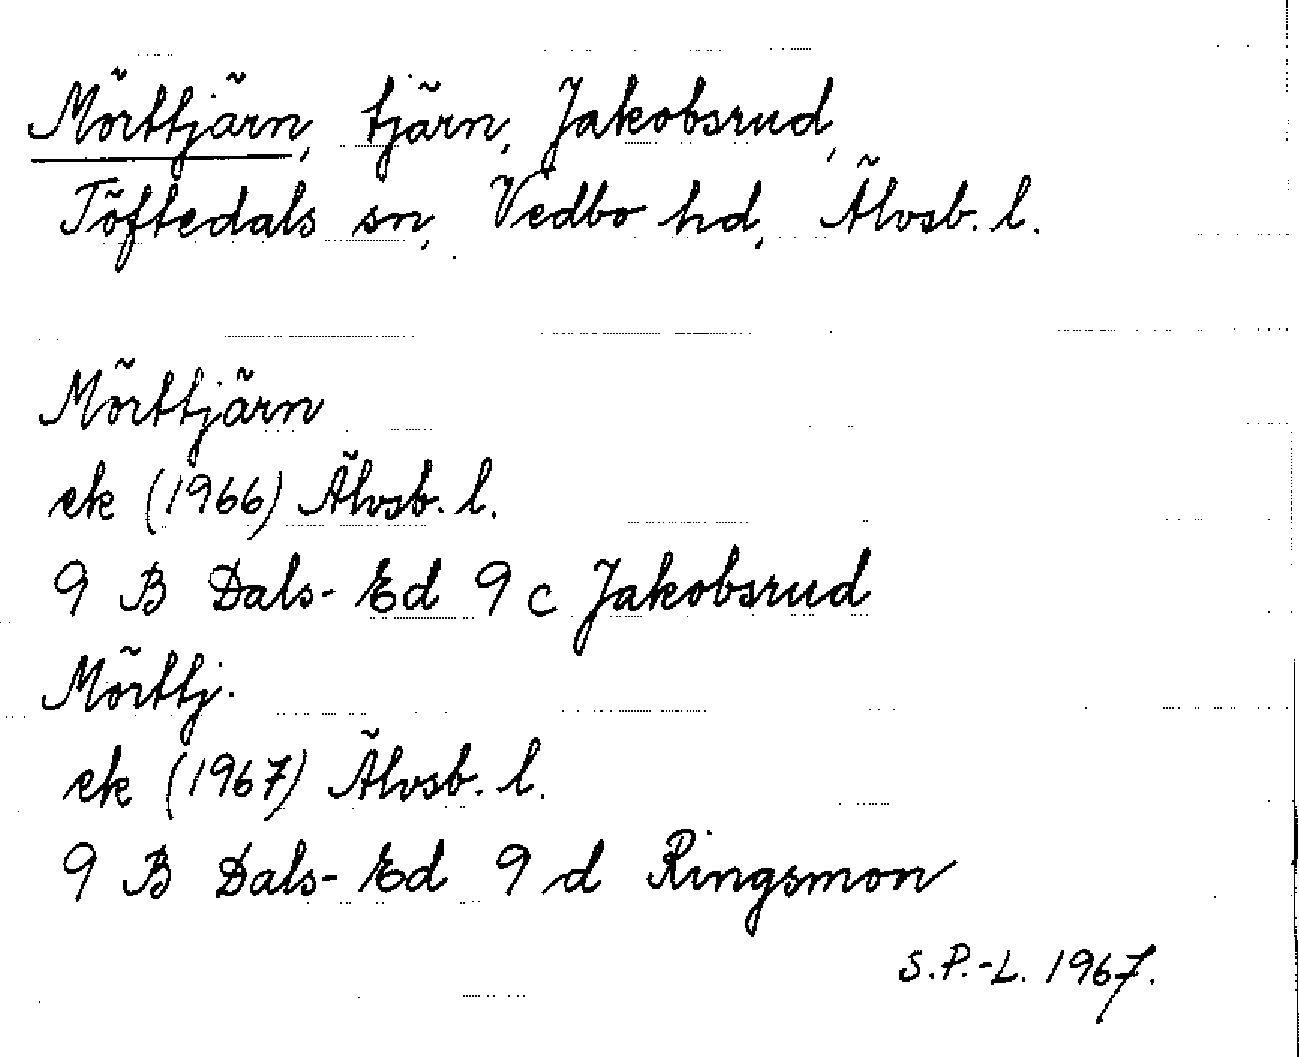 Mörttjärn, tjärn, Jakobsrud,
Töftedals sn, Vedbo hd, Älvsb. l.
Mörttjärn
ek (1966) Älvsb. l.
9 B Dals-Ed 9 c Jakobsrud
Mörttj.
ek (1967) Älvsb. l.
9 B Dals-Ed 9 d Ringsmon
S.P.-L. 1967.